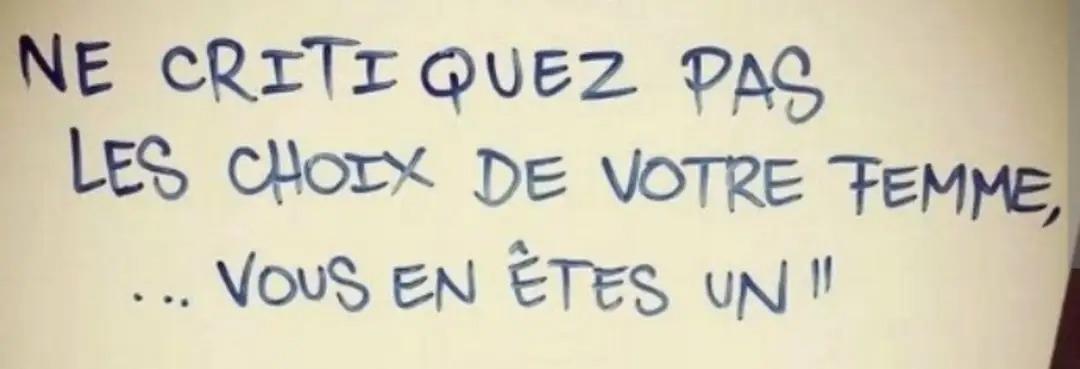 NE CRITIQUEZ PAS
LES CHOIX DE VOTRE FEMME,
... VOUS EN ÊTES UN "